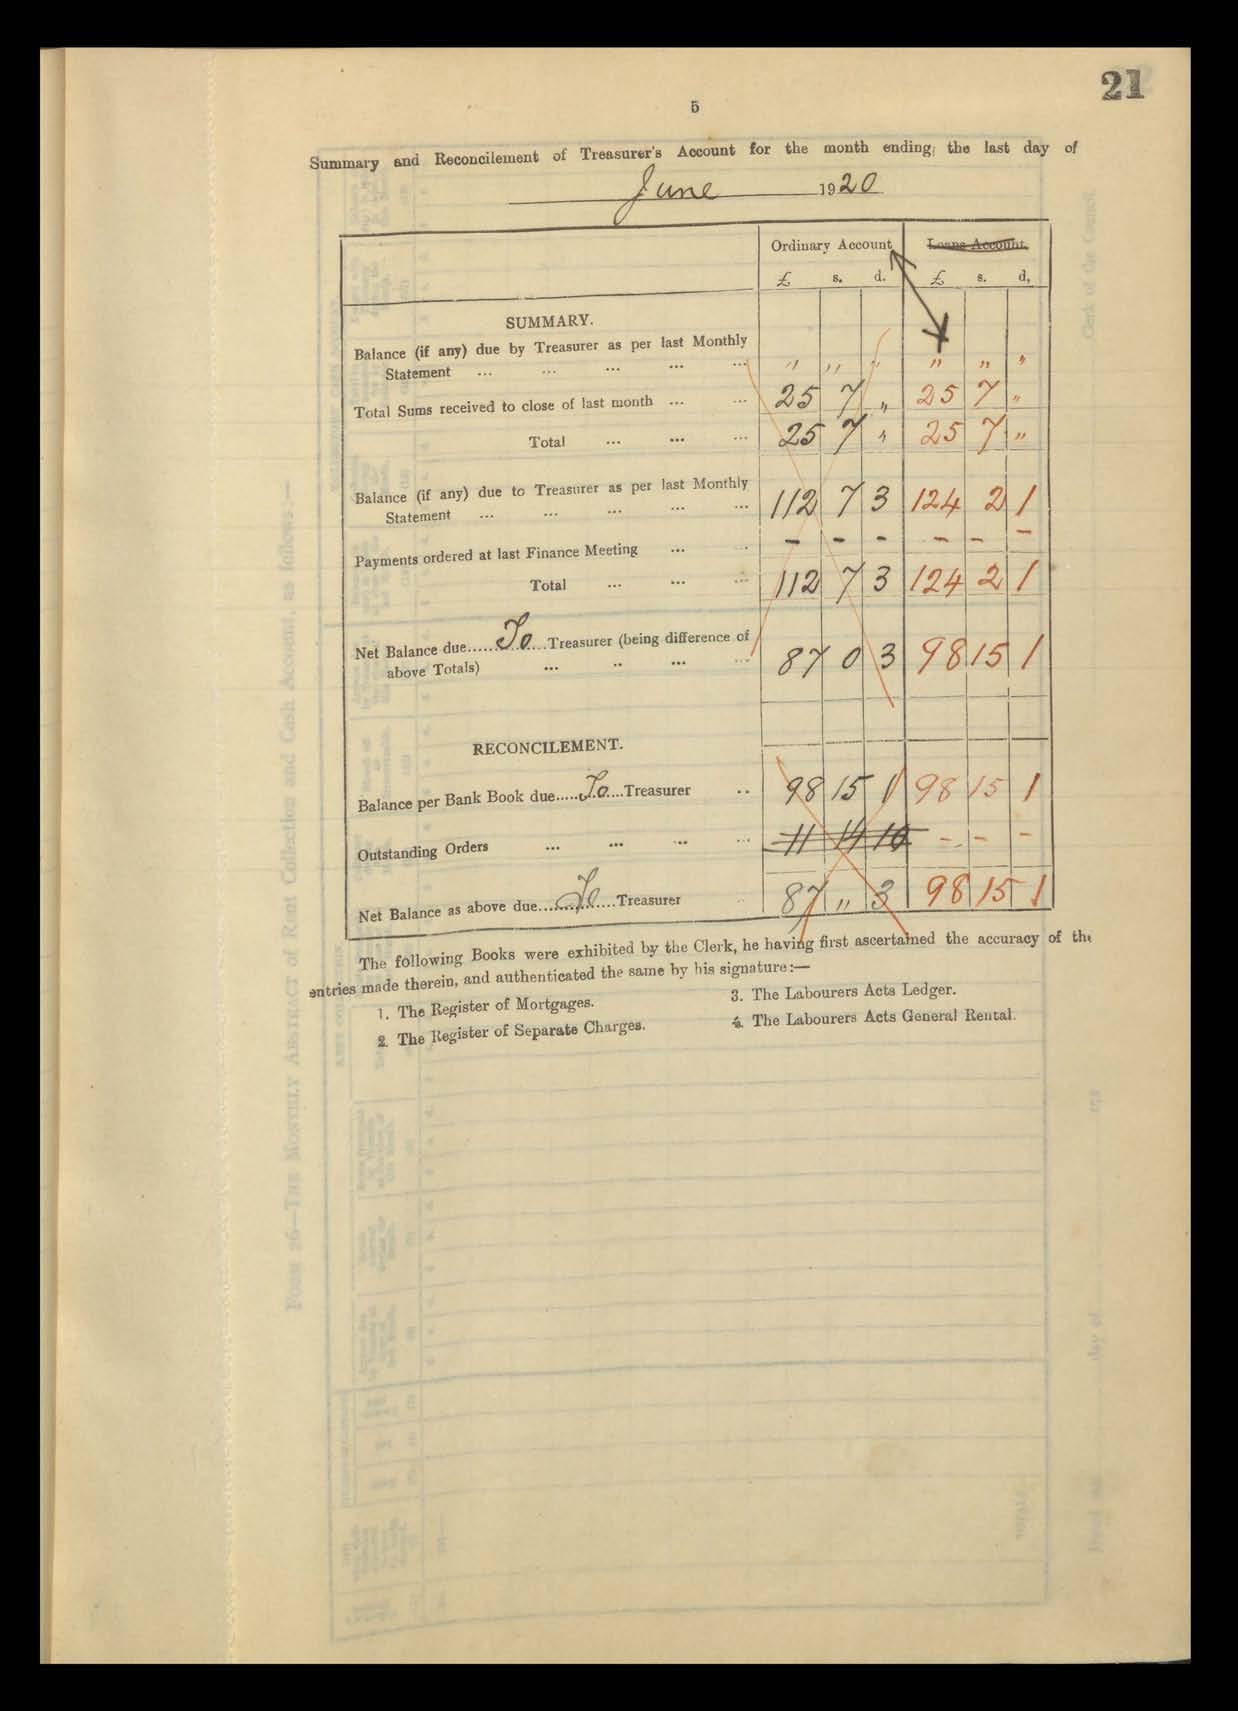 21
5
Summary and Reconcilement of Treasurer's Account for the month ending, the last day of
June 1920
Ordinary Account Loans Account.
£ s. d. £ s. d,
SUMMARY.
Balance (if any) due by Treasurer as per last Monthly
Statement ... ... ... ... ... " " " " " "
Total Sums received to close of last month ... ... 25 7 " 25 7 "
Total ... ... ... 25 7 " 25 7 "
Balance (if any) due to Treasurer as per last Monthly
Statement ... ... ... ... ... 112 7 3 124 2 1
Payments ordered at last Finance Meeting ... ... - - - - - -
Total ... ... ... 112 7 3 124 2 1
Net Balance due......To....Treasurer (being difference of
above Totals) ... .. ... ... 87 0 3 98 15 1
RECONCILEMENT.
Balance per Bank Book due.....To....Treasurer .. 98 15 1 98 15 1
Outstanding Orders ... ... ... ... 11 14 10 - - -
Net Balance as above due....To....Treasurer 87 " 3 98 15 1
The following Books were exhibited by the Clerk, he having first ascertained the accuracy of the
entries made therein, and authenticated the same by his signature:—
1. The Register of Mortgages. 3. The Labourers Acts Ledger.
2. The Register of Separate Charges. 4. The Labourers Acts General Rental.